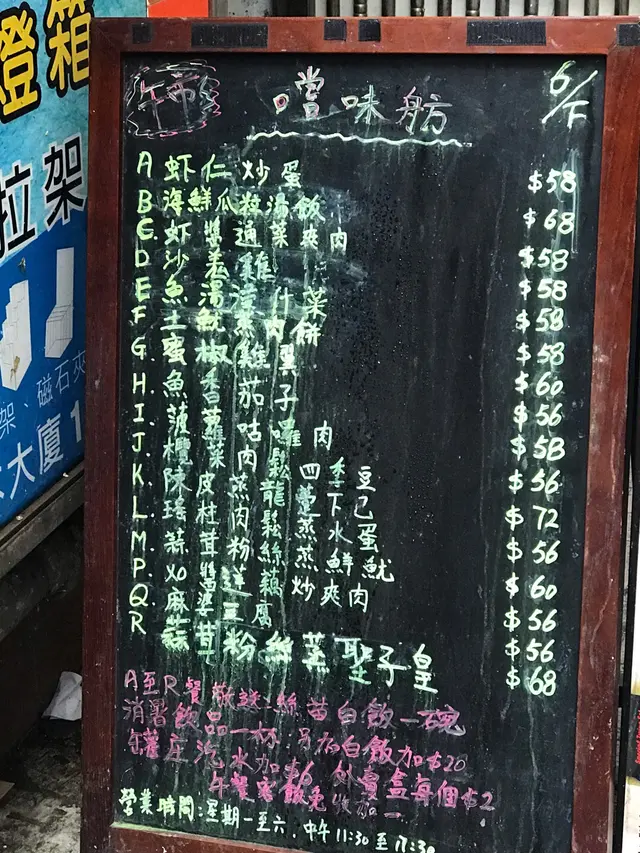 燈箱
拉架
架、磁石夾
大廈1
午市 嚐味舫 6/F
A 虾仁炒蛋 $58
B 海鮮瓜粒湯飯 $68
C 虾醬通菜爽肉 $58
D 沙姜雞 $58
E 魚湯浸什菜 $58
F 土魷蒸肉餅 $58
G 蜜椒雞翼 $60
H 魚香茄子 $56
I 菠蘿咕嚕肉 $58
J 欖菜肉鬆四季豆 $56
K 陳皮蒸龍躉下巴 $72
L 瑤柱肉鬆蒸水蛋 $56
M 蒜茸粉絲蒸鮮魷 $60
P XO醬蓮藕炒爽肉 $56
Q 麻婆豆腐 $56
R 蒜茸粉絲蒸聖子皇 $68
A至R餐 絲苗白飯一碗
消暑飲品一杯. 另加白飯加$20
罐庄汽水加$6 外賣盒每個$2
午餐 飯免收加一
營業時間:星期一至六. 中午11:30至17:30